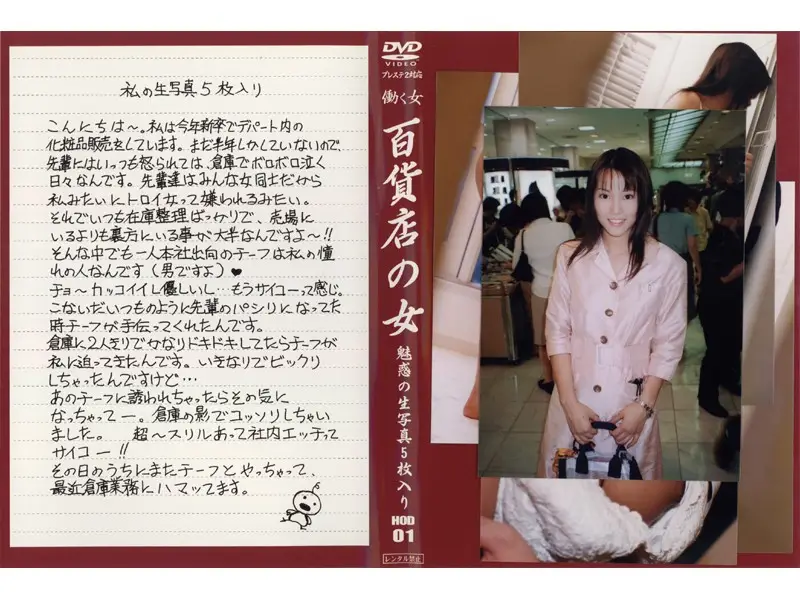 私の生写真5枚入り
こんにちは〜。私は今年新卒でデパート内の
化粧品販売をしています。まだ半年しかしていないので、
先輩にはいつも怒られては、倉庫でボロボロ泣く
日々なんです。先輩達はみんな女同士だから
私みたいにトロイ女って嫌われるみたい。
それでいつも在庫整理ばっかりで、売場に
いるよりも裏方にいる事が大半なんですよ〜!!
そんな中でも一人本社出向のチーフは私の憧
れの人なんです(男ですよ)♥
チョ〜カッコイイし優しいし…もうサイコーって感じ。
こないだいつものように先輩のパシリになってた
時チーフが手伝ってくれたんです。
倉庫に2人きりでかなりドキドキしてたらチーフが
私に迫ってきたんです。いきなりでビックリ
しちゃったんですけど…
あのチーフに誘われちゃったらその気に
なっちゃってー。倉庫の影でコッソリしちゃい
ました。 超〜スリルあって社内エッチって
サイコー!!
その日のうちにまたチーフとやっちゃって、
最近倉庫業務にハマってます。
DVD
VIDEO
プレステ2対応
働く女
百貨店の女
魅惑の生写真5枚入り
HOD
01
レンタル禁止